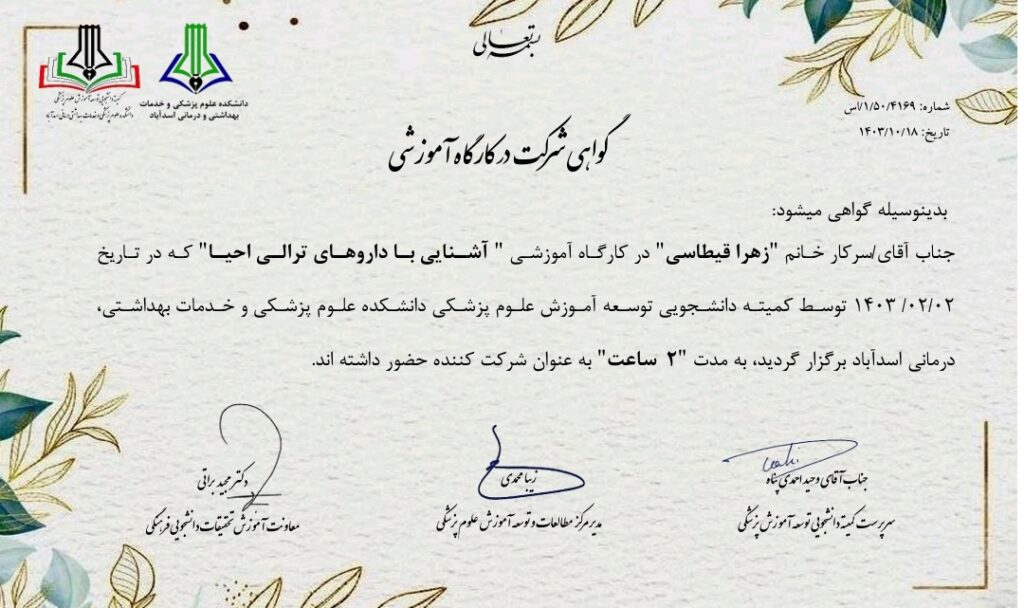 بسمه تعالی
کمیته دانشجویی توسعه آموزش علوم پزشکی
دانشکده علوم پزشکی و خدمات بهداشتی درمانی اسدآباد
دانشکده علوم پزشکی و خدمات
بهداشتی و درمانی اسدآباد
شماره: ۱/۵۰/۴۱۶۹/اس
تاریخ: ۱۴۰۳/۱۰/۱۸
گواهی شرکت در کارگاه آموزشی
بدینوسیله گواهی میشود:
جناب آقای/سرکار خانم "زهرا قیطاسی" در کارگاه آموزشی " آشنایی با داروهای ترالی احیا" که در تاریخ
۱۴۰۳ /۰۲/۰۲ توسط کمیته دانشجویی توسعه آموزش علوم پزشکی دانشکده علوم پزشکی و خدمات بهداشتی،
درمانی اسدآباد برگزار گردید، به مدت "۲ ساعت" به عنوان شرکت کننده حضور داشته اند.
جناب آقای وحید احمدی پناه
سرپرست کمیته دانشجویی توسعه آموزش پزشکی
زیبا محمدی
مدیر مرکز مطالعات و توسعه آموزش علوم پزشکی
دکتر مجید براتی
معاونت آموزش تحقیقات دانشجویی فرهنگی